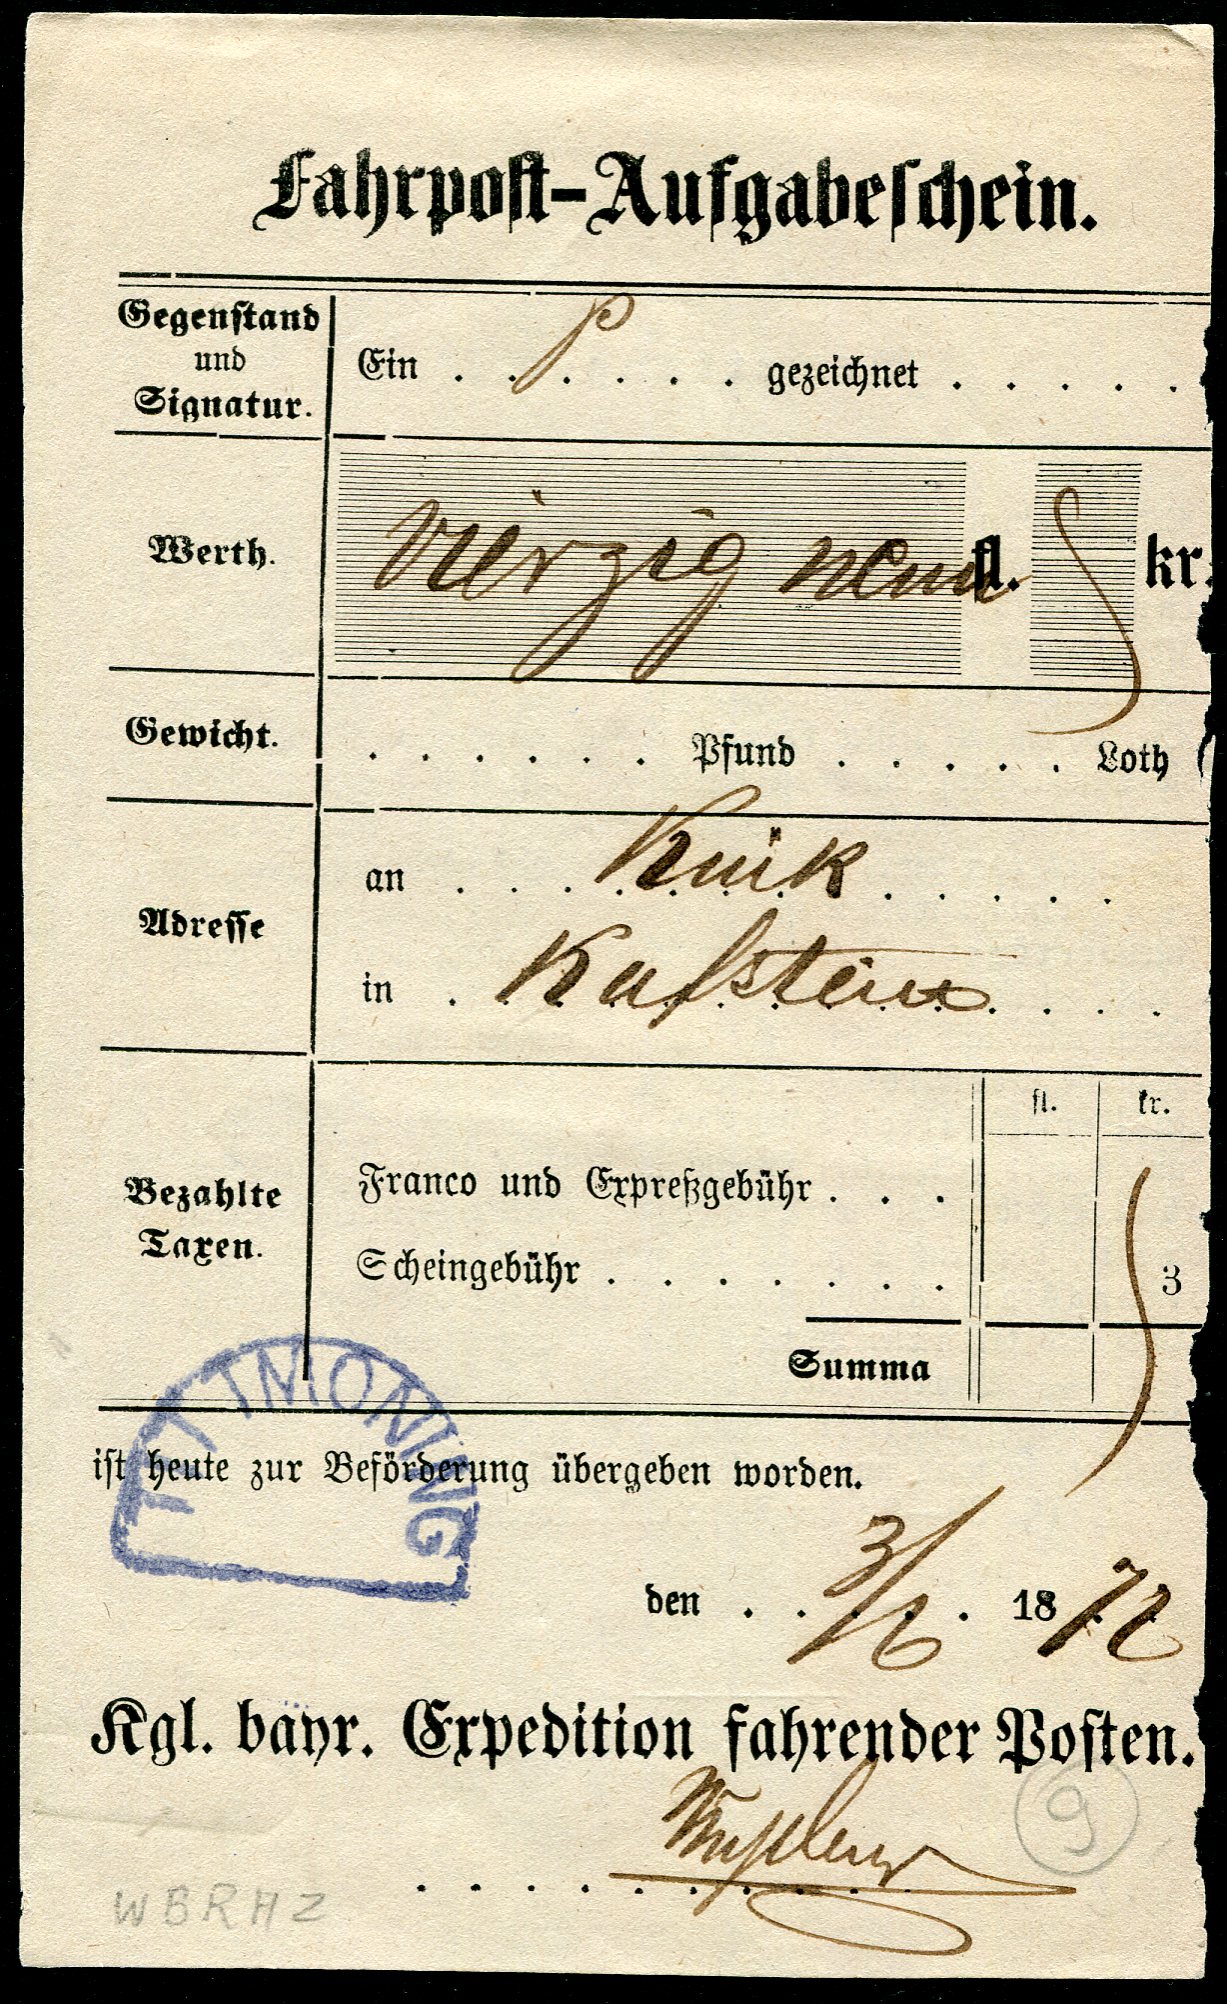 Fahrpost-Aufgabeschein.
Gegenstand
und
Signatur.
Ein . P . . . . . gezeichnet . . . . .
Werth.
vierzig neun fl. kr.
Gewicht.
. . . . . . Pfund . . . . . Loth
Adresse
an . . . . . . . . . .
in . Kufstein . . . .
fl. kr.
Bezahlte
Taxen.
Franco und Expreßgebühr . . .
Scheingebühr . . . . . . . 3
Summa
TITTMONING
ist heute zur Beförderung übergeben worden.
den . . 3/6 . 1872
Kgl. bayr. Expedition fahrender Posten.
9
WBRHZ